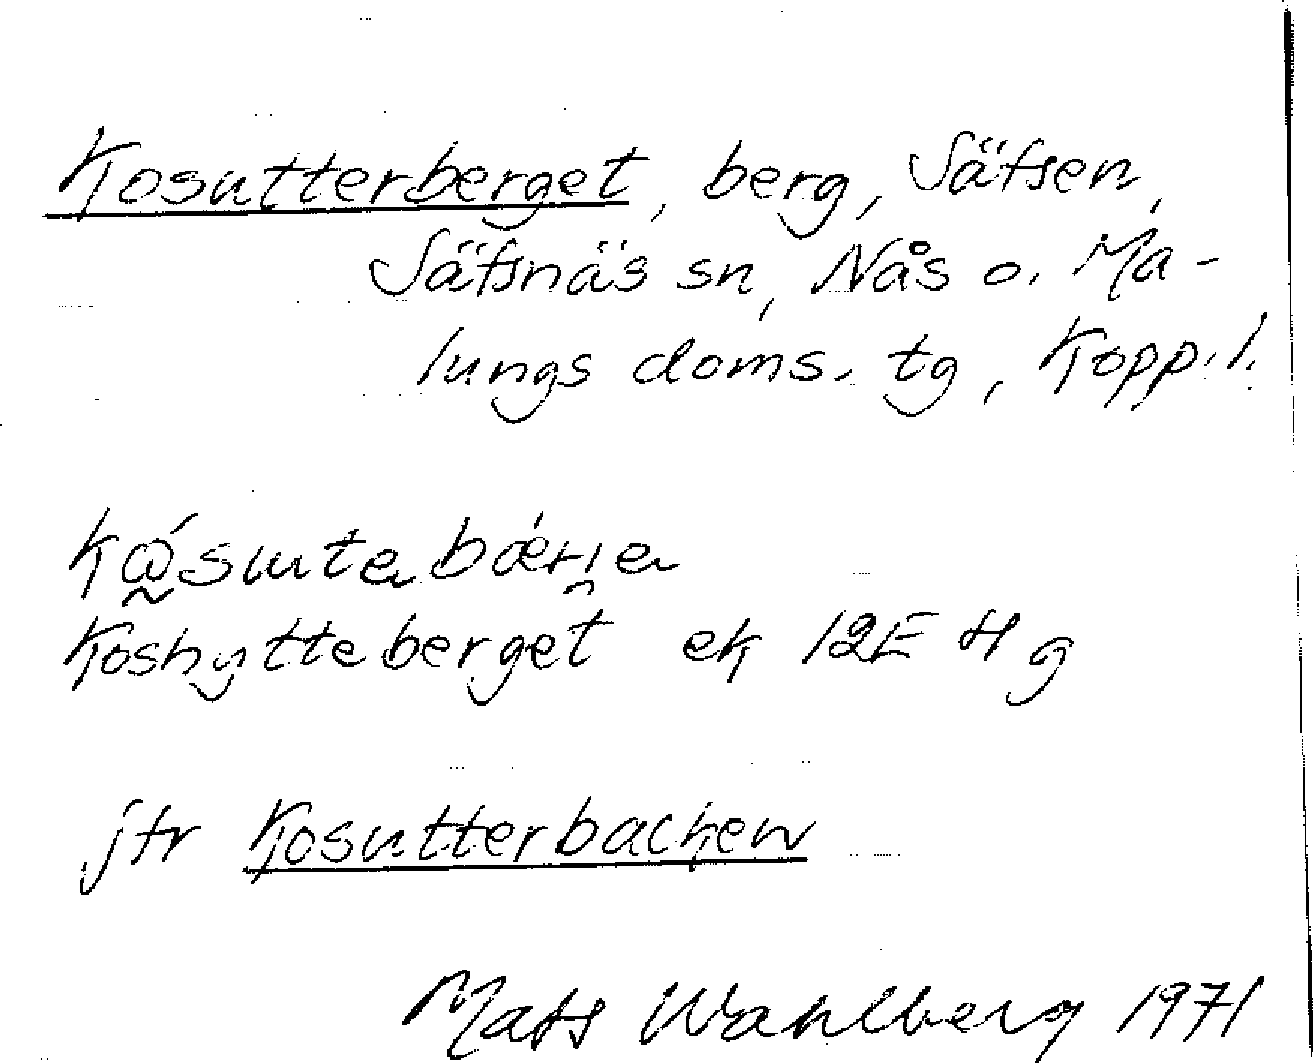 Kosutterberget, berg, Säfsen,
Säfsnäs sn, Nås o. Ma-
lungs doms. tg, Kopp. l.
Koshytteberget ek 12E 4 g
jfr Kosutterbacken
Mats Wahlberg 1971